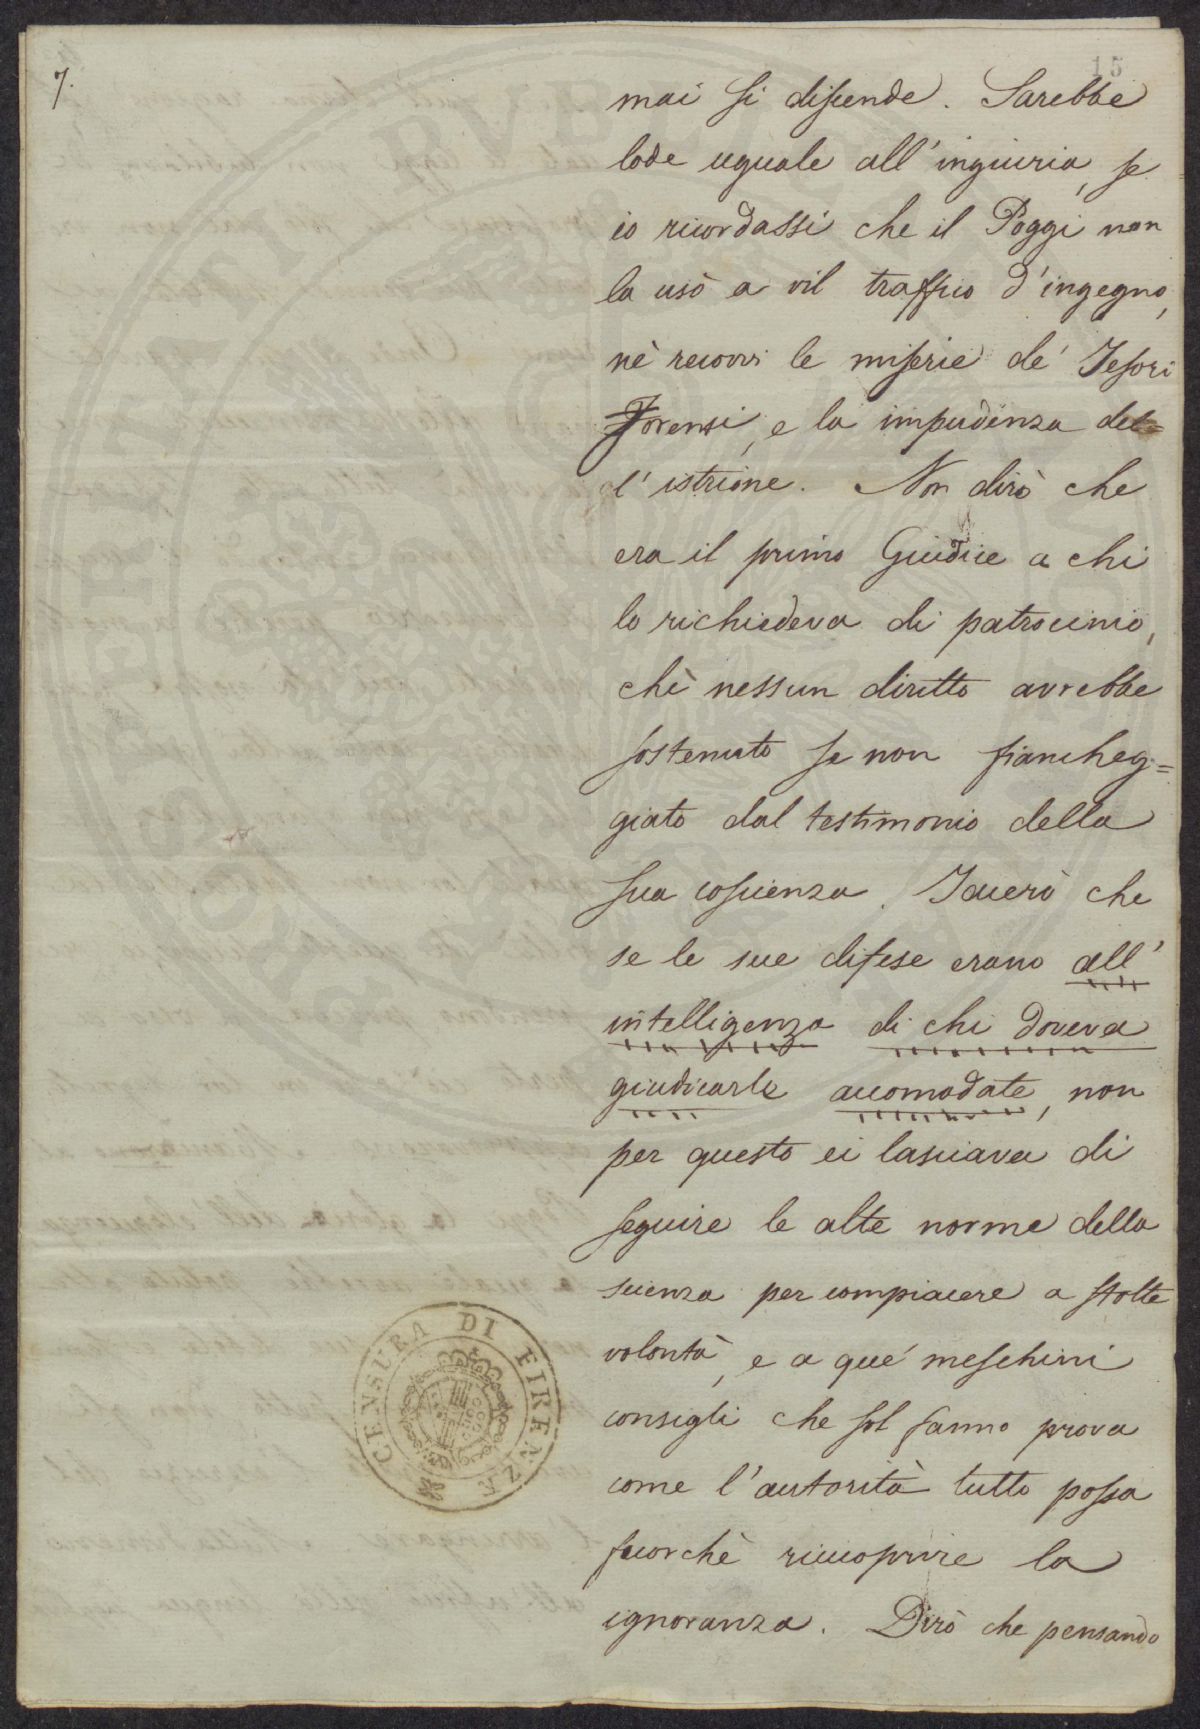 7.
15
mai si discende. Sarebbe
lode uguale all'ingiuria, se
io ricordassi che il Poggi non
la usò a vil traffico d'ingegno,
nè recovvi le miserie de'
Forensi, e la impudenza del=
l'istrione. Non dirò che
era il primo Giudice a chi
lo richiedeva di patrocinio,
chè nessun diritto avrebbe
sostenuto se non fiancheg=
giato dal testimonio della
sua coscienza. Tacerò che
se le sue difese erano all'
intelligenza di chi doveva
giudicarle accomodate, non
per questo ei lasciava di
seguire le alte norme della
scienza per compiacere a stolte
volontà, e a que' meschini
consigli che sol fanno prova
come l'autorità tutto possa
fuorchè ricuoprire la
ignoranza. Dirò che pensando
CENSURA DI FIRENZE